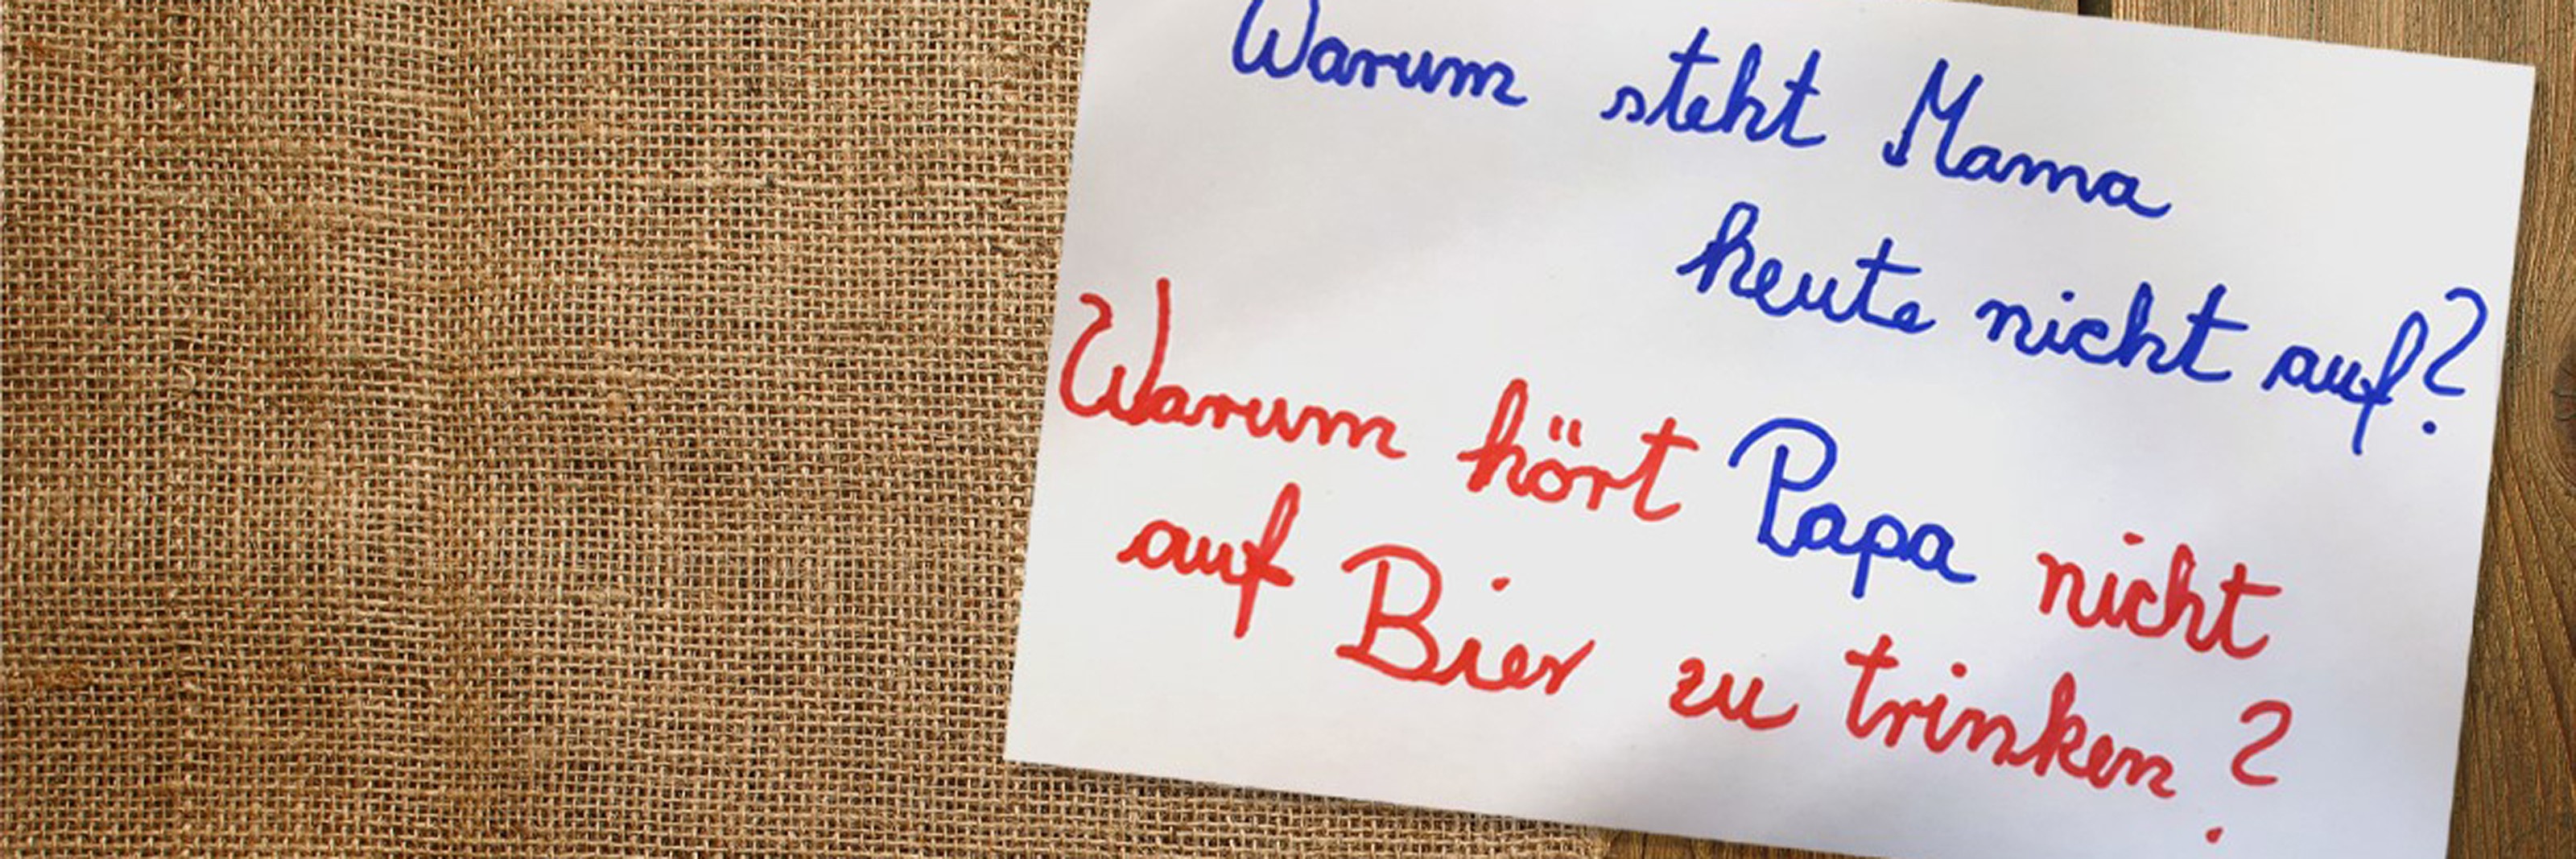 Warum steht Mama
heute nicht auf?
Warum hört Papa nicht
auf Bier zu trinken?